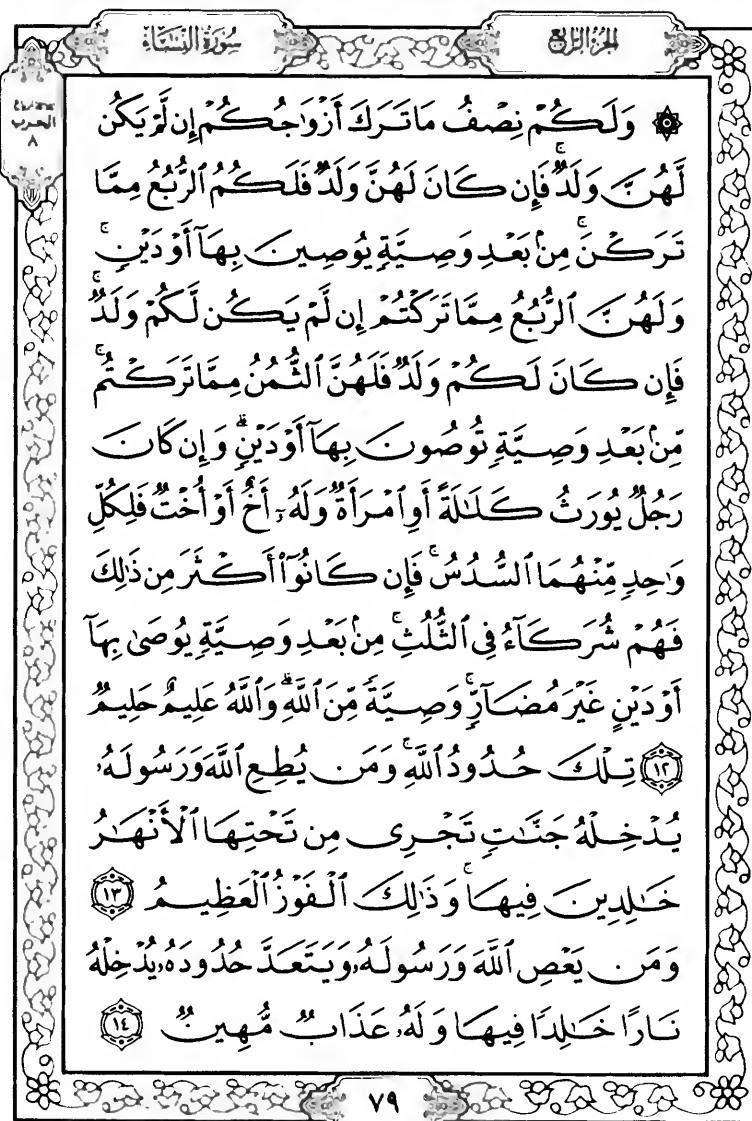 سُورَةُ النِّسَاءِ
الجُزْءُ الرَّابِعُ
الحزب
٨
۞ وَلَكُمْ نِصْفُ مَا تَرَكَ أَزْوَٰجُكُمْ إِن لَّمْ يَكُن
لَّهُنَّ وَلَدٌۚ فَإِن كَانَ لَهُنَّ وَلَدٌ فَلَكُمُ ٱلرُّبُعُ مِمَّا
تَرَكْنَۚ مِنۢ بَعْدِ وَصِيَّةٍ يُوصِينَ بِهَآ أَوْ دَيْنٍۚ
وَلَهُنَّ ٱلرُّبُعُ مِمَّا تَرَكْتُمْ إِن لَّمْ يَكُن لَّكُمْ وَلَدٌۚ
فَإِن كَانَ لَكُمْ وَلَدٌ فَلَهُنَّ ٱلثُّمُنُ مِمَّا تَرَكْتُمۚ
مِّنۢ بَعْدِ وَصِيَّةٍ تُوصُونَ بِهَآ أَوْ دَيْنٍۗ وَإِن كَانَ
رَجُلٌ يُورَثُ كَلَٰلَةً أَوِ ٱمْرَأَةٌ وَلَهُۥٓ أَخٌ أَوْ أُخْتٌ فَلِكُلِّ
وَٰحِدٍ مِّنْهُمَا ٱلسُّدُسُۚ فَإِن كَانُوٓا۟ أَكْثَرَ مِن ذَٰلِكَ
فَهُمْ شُرَكَآءُ فِى ٱلثُّلُثِۚ مِنۢ بَعْدِ وَصِيَّةٍ يُوصَىٰ بِهَآ
أَوْ دَيْنٍ غَيْرَ مُضَآرٍّۚ وَصِيَّةً مِّنَ ٱللَّهِۗ وَٱللَّهُ عَلِيمٌ حَلِيمٌ
١٢ تِلْكَ حُدُودُ ٱللَّهِۚ وَمَن يُطِعِ ٱللَّهَ وَرَسُولَهُۥ
يُدْخِلْهُ جَنَّٰتٍ تَجْرِى مِن تَحْتِهَا ٱلْأَنْهَٰرُ
خَٰلِدِينَ فِيهَاۚ وَذَٰلِكَ ٱلْفَوْزُ ٱلْعَظِيمُ ١٣
وَمَن يَعْصِ ٱللَّهَ وَرَسُولَهُۥ وَيَتَعَدَّ حُدُودَهُۥ يُدْخِلْهُ
نَارًا خَٰلِدًا فِيهَا وَلَهُۥ عَذَابٌ مُّهِينٌ ١٤
٧٩